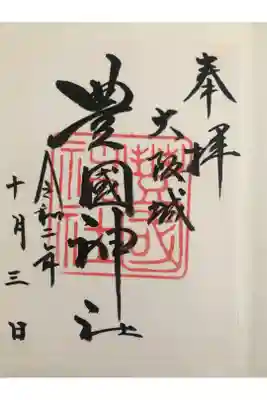 奉拝
大阪城
豊國神社
令和二年
十月三日